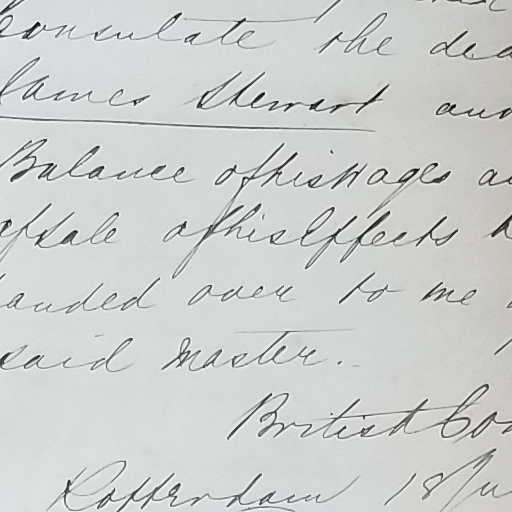 Consulate the dea
James Stewart and
Balance of his Wages a
of sale of his Effects
handed over to me
said Master.
British Con
Rotterdam 18 Ju